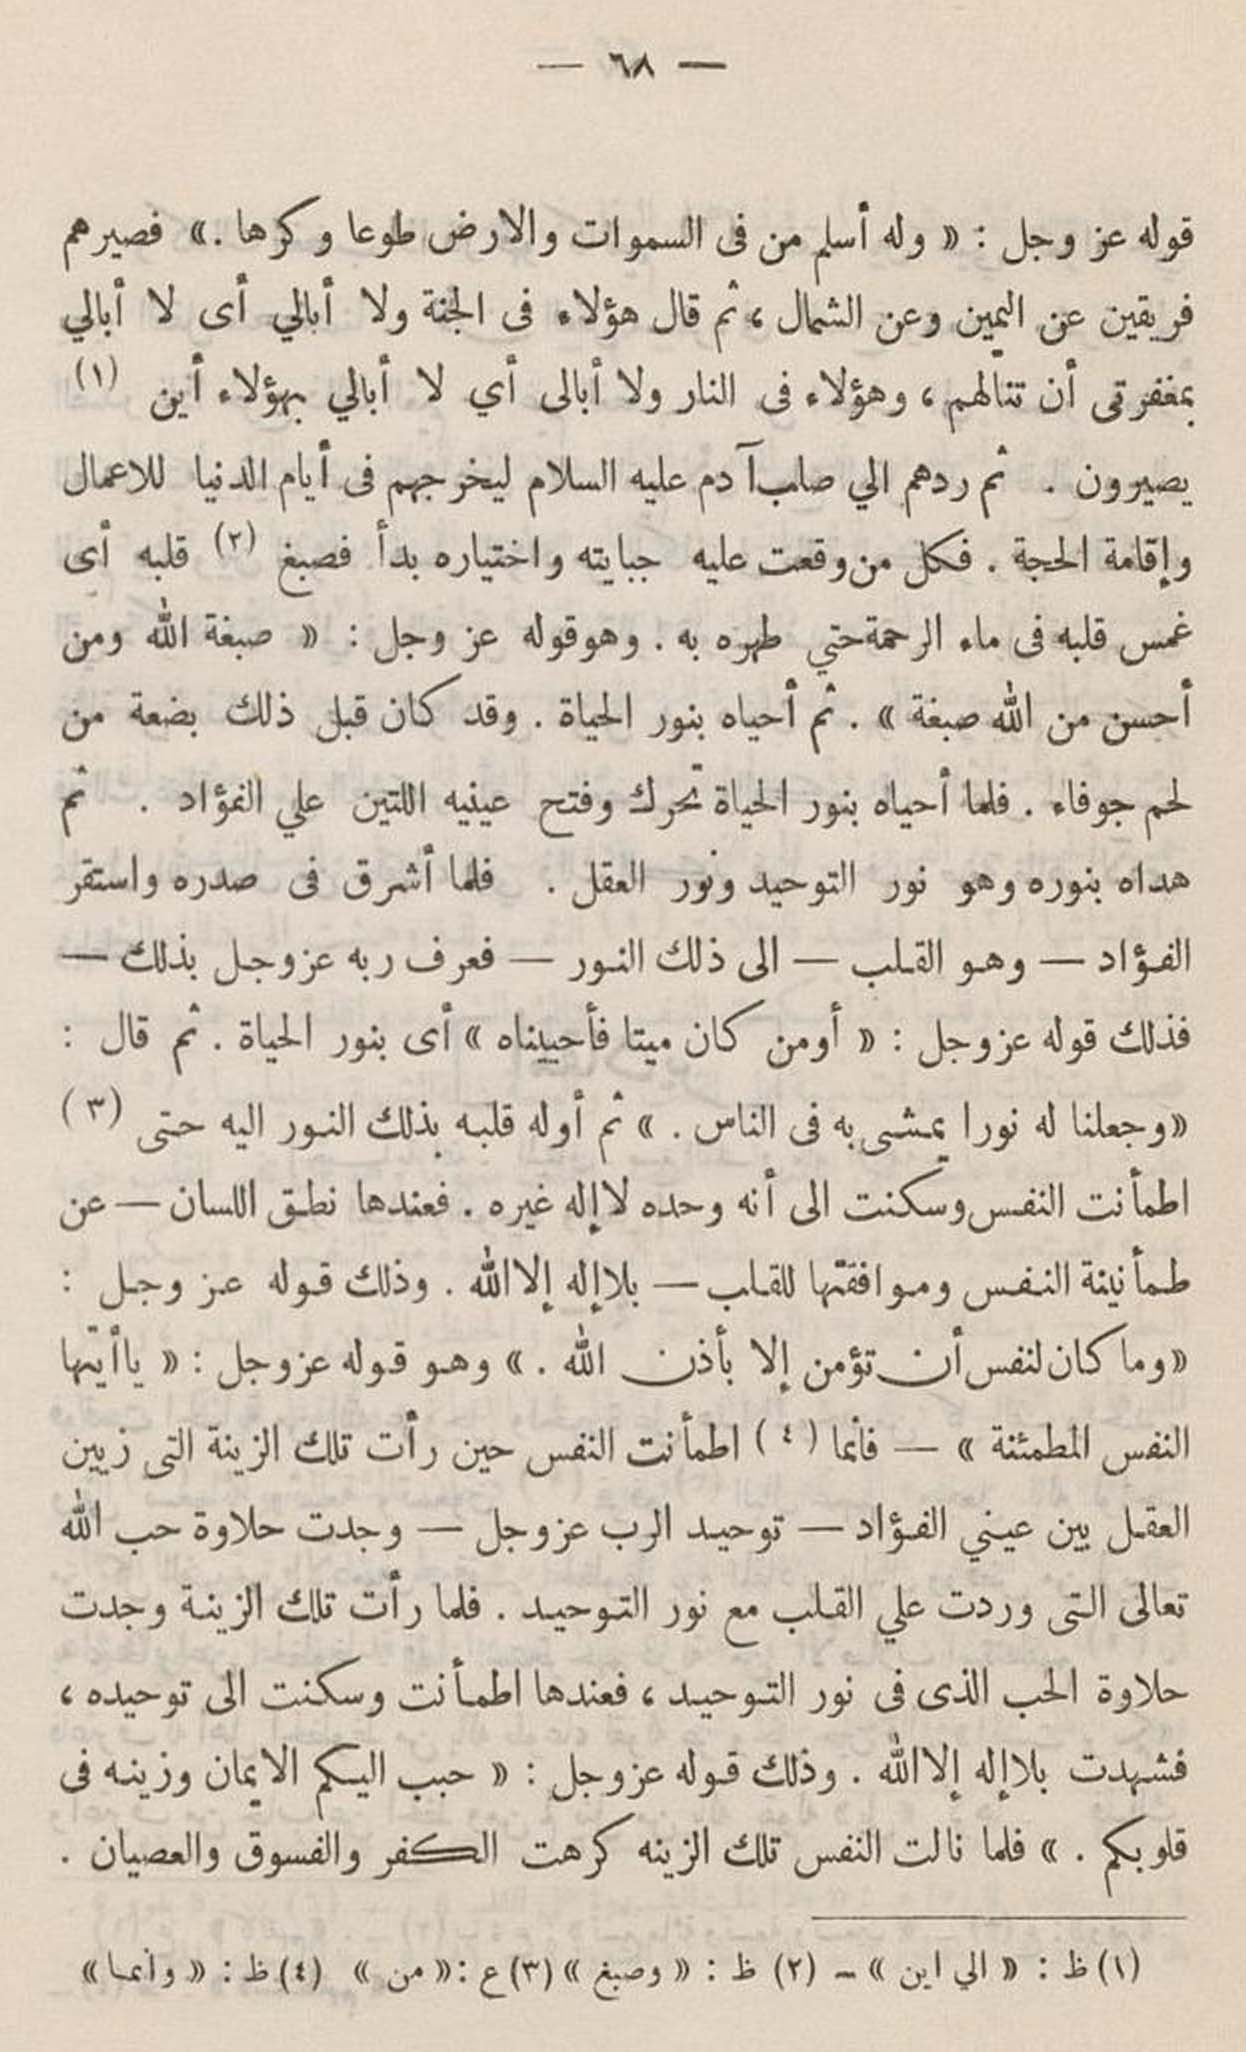 — ٦٨ —
قوله عز وجل : « وله أسلم من فى السموات والارض طوعا وكرها . » فصيرهم
فريقين عن اليمين وعن الشمال ، ثم قال هؤلاء فى الجنة ولا أبالي أى لا أبالي
بمغفرتى أن تنالهم ، وهؤلاء فى النار ولا أبالى أي لا أبالي بهؤلاء أين (١)
يصيرون . ثم ردهم الي صلب آدم عليه السلام ليخرجهم فى أيام الدنيا للاعمال
وإقامة الحجة . فكل من وقعت عليه جبايته واختياره بدأ فصبغ (٢) قلبه أى
غمس قلبه فى ماء الرحمة حتي طهره به . وهو قوله عز وجل : « صبغة الله ومن
أحسن من الله صبغة » . ثم أحياه بنور الحياة . وقد كان قبل ذلك بضعة من
لحم جوفاء . فلما أحياه بنور الحياة تحرك وفتح عينيه اللتين علي الفؤاد . ثم
هداه بنوره وهو نور التوحيد ونور العقل . فلما أشرق فى صدره واستقر
الفؤاد — وهو القلب — الى ذلك النور — فعرف ربه عز وجل بذلك —
فذلك قوله عز وجل : « أومن كان ميتا فأحييناه » أى بنور الحياة . ثم قال :
« وجعلنا له نورا يمشى به فى الناس . » ثم أوله قلبه بذلك النور اليه حتى (٣)
اطمأنت النفس وسكنت الى أنه وحده لا إله غيره . فعندها نطق اللسان — عن
طمأنينة النفس وموافقتها للقلب — بلا إله إلا الله . وذلك قوله عز وجل :
« وما كان لنفس أن تؤمن إلا بأذن الله . » وهو قوله عز وجل : « يا أيتها
النفس المطمئنة » — فأنما (٤) اطمأنت النفس حين رأت تلك الزينة التى زيين
العقل بين عيني الفؤاد — توحيد الرب عز وجل — وجدت حلاوة حب الله
تعالى التى وردت علي القلب مع نور التوحيد . فلما رأت تلك الزينة وجدت
حلاوة الحب الذى فى نور التوحيد ، فعندها اطمأنت وسكنت الى توحيده ،
فشهدت بلا إله إلا الله . وذلك قوله عز وجل : « حبب اليكم الايمان وزينه فى
قلوبكم . » فلما نالت النفس تلك الزينه كرهت الكفر والفسوق والعصيان .
(١) ظ : « الي اين » – (٢) ظ : « وصبغ » (٣) ع : « من » (٤) ظ : « وانما »